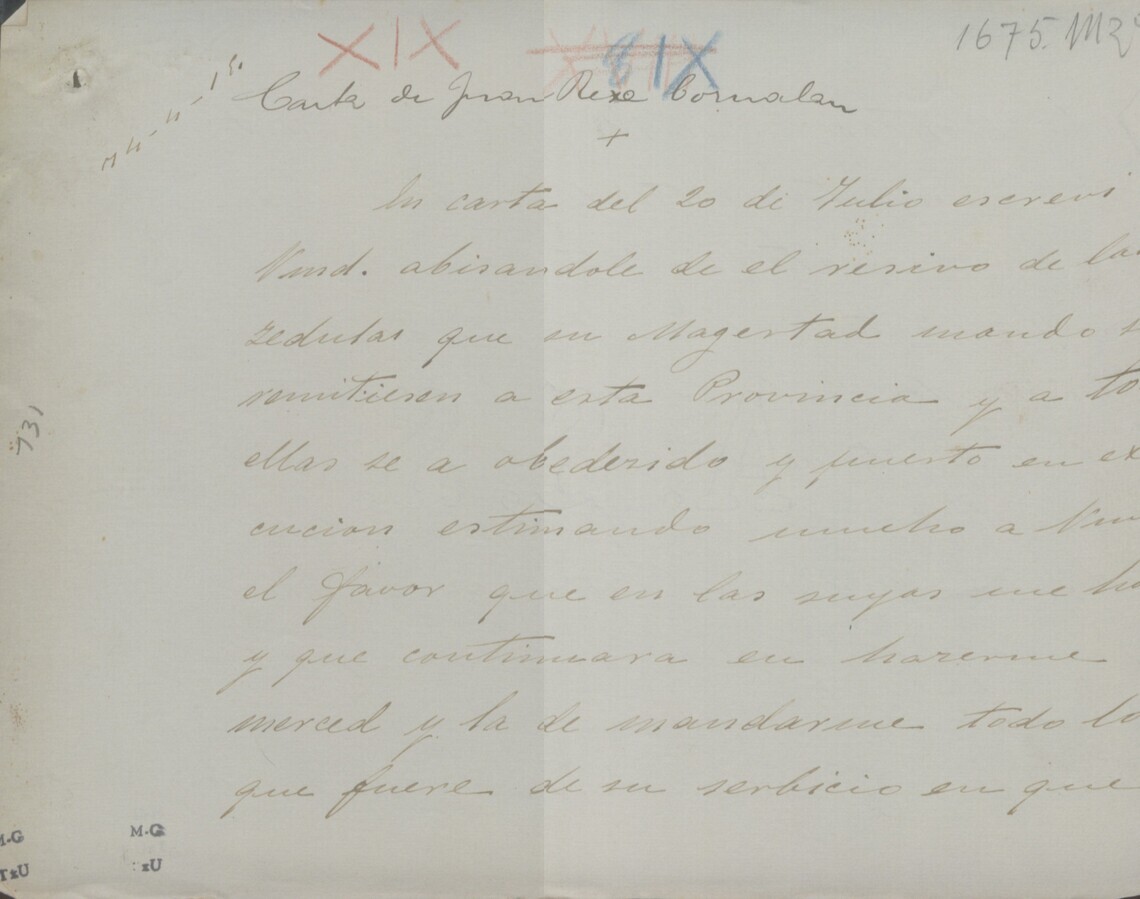 XIX IX
1675.
Carta de Juan Rexe Cornalan
+
En carta del 20 de Julio escrevi
Vmd. abisandole de el resivo de las
zedulas que su Magestad mando s
remitiesen a esta Provincia y a to
ellas se a obedesido y puesto en ex
cucion estimando mucho a Vm
el favor que en las suyas me h
y que continuara en hazerme
merced y la de mandarme todo lo
que fuere de su serbicio en que
731
M-G M-G
TxU : xU